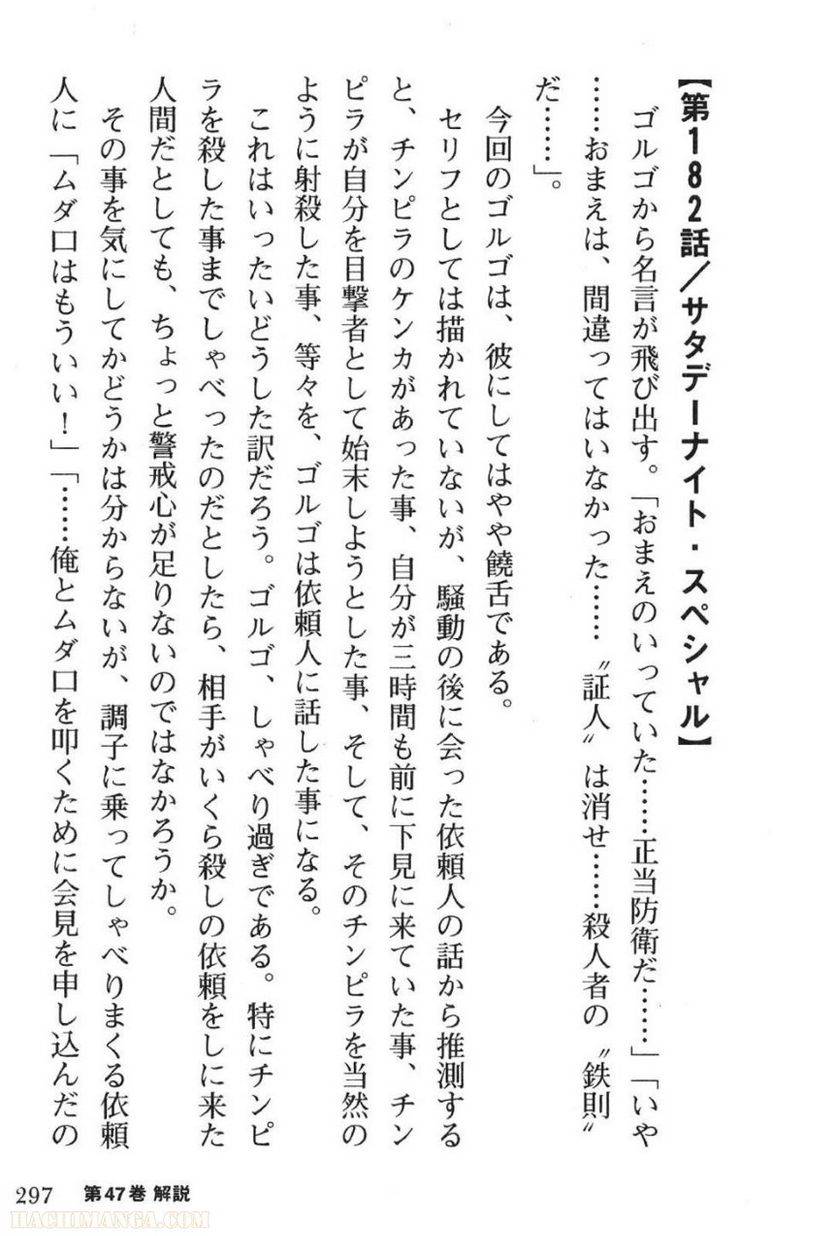 【第182話／サタデーナイト・スペシャル】
　ゴルゴから名言が飛び出す。「おまえのいっていた……正当防衛だ……」「いや
……おまえは、間違ってはいなかった……〝証人〟は消せ……殺人者の〝鉄則〟
だ……」。
　今回のゴルゴは、彼にしてはやや饒舌である。
　セリフとしては描かれていないが、騒動の後に会った依頼人の話から推測する
と、チンピラのケンカがあった事、自分が三時間も前に下見に来ていた事、チン
ピラが自分を目撃者として始末しようとした事、そして、そのチンピラを当然の
ように射殺した事、等々を、ゴルゴは依頼人に話した事になる。
　これはいったいどうした訳だろう。ゴルゴ、しゃべり過ぎである。特にチンピ
ラを殺した事までしゃべったのだとしたら、相手がいくら殺しの依頼をしに来た
人間だとしても、ちょっと警戒心が足りないのではなかろうか。
　その事を気にしてかどうかは分からないが、調子に乗ってしゃべりまくる依頼
人に「ムダ口はもういい！」「……俺とムダ口を叩くために会見を申し込んだの
297 第47巻 解説
HACHIMANGA.COM